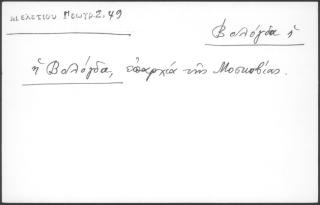 Μελετίου Γεωγρ. 2. 49
Βολόγδα ἡ
ἡ Βολόγδα, ἐπαρχία τῆς Μοσκοβίας.